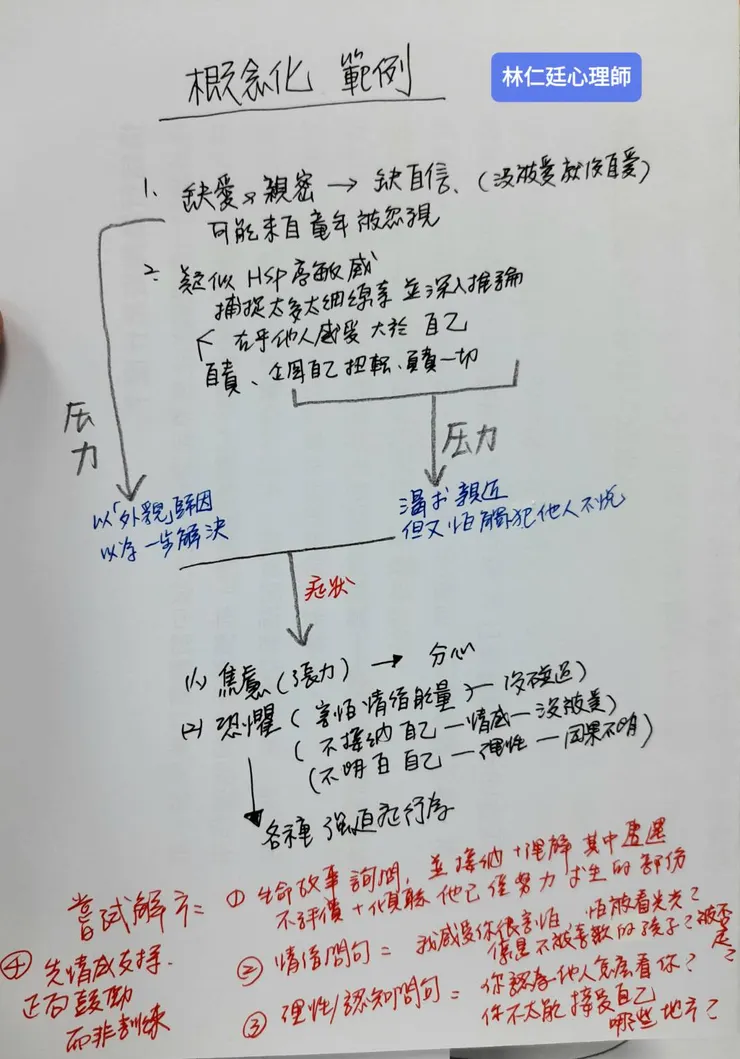 概念化 範例
林仁廷心理師
1. 缺愛、親密 → 缺自信、(沒被愛就沒自愛)
可能來自童年被忽視
2. 疑似 HSP 高敏感
捕捉太多太細線索 並深入推論
在乎他人感受 大於 自己
自責、企圖自己扭轉、負責一切
壓力
壓力
以「外貌」歸因
以為一步解決
渴求親近
但又怕觸犯他人不悅
症狀
(1) 焦慮(張力) → 分心
(2) 恐懼 (害怕情緒能量)
(不接納自己 — 情感 — 沒被愛)
(不明白自己 — 理性 — 因果不明)
各種強迫症行為
嘗試解方=
① 生命故事 詢問, 並接納+理解 其中遭遇
不評價+傾聽 他已經努力求生的部份
② 情緒問句 = 我感受你很害怕, 怕被看光光?
像是不被喜歡的孩子? 被否定?
③ 理性/認知問句 = 你認為他人怎麼看你?
你不太能接受自己
哪些地方?
④ 先情感支持.
正向鼓勵
而非訓練